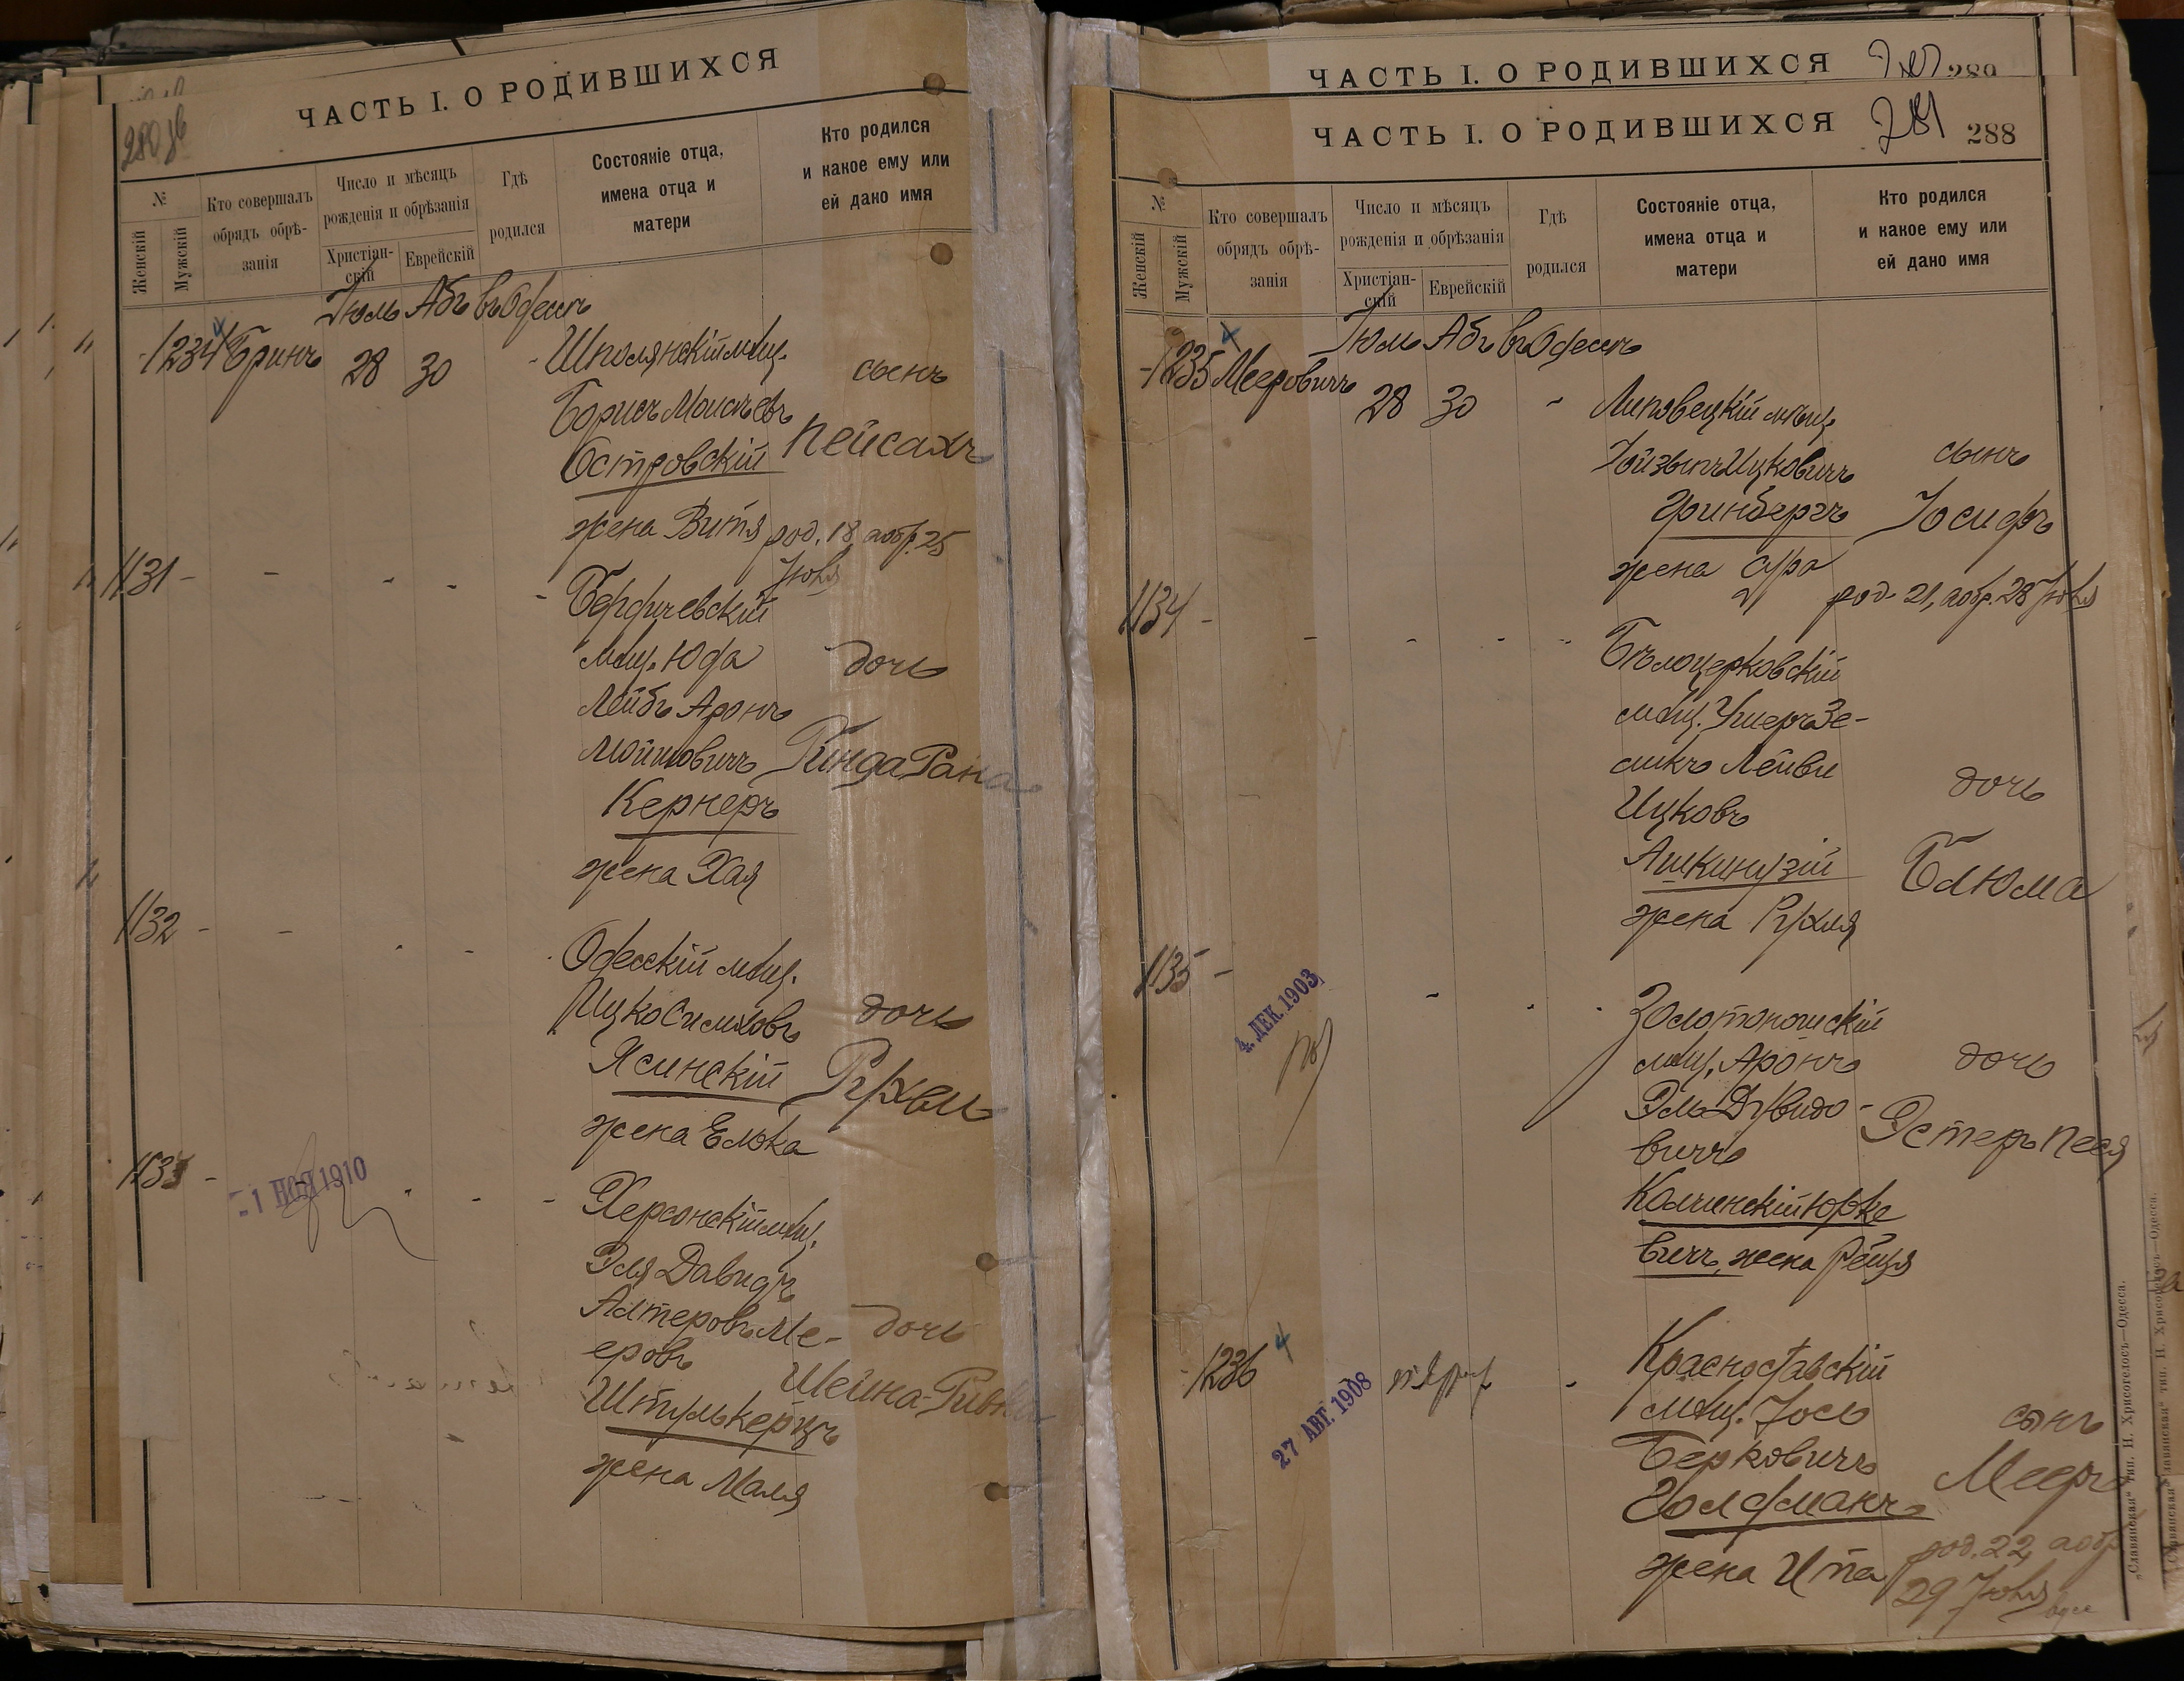 ЧАСТЬ I. О РОДИВШИХСЯ
№
Женскій
Мужскій
Кто совершалъ
обрядъ обрѣ-
занія
Число и мѣсяцъ
рожденія и обрѣзанія
Христіан-
скій
Еврейскій
Гдѣ
родился
Состояніе отца,
имена отца и
матери
Кто родился
и какое ему или
ей дано имя
Іюль Абъ въ Одессѣ
1234 Бринъ 28 30 - Шполянскій мѣщ.
сынъ
Борисъ Моисѣевъ
Пейсахъ
Островскій
жена Витя род. 18, а обр. 25
Іюля
1131 - - - - - Бердичевскій
мѣщ. Юда дочь
Лейбъ Аронъ
Мошковичъ Гинда Рана
Кернеръ
жена Хая
1132 - - - - - Одесскій мѣщ.
Ицко Симховъ дочь
Ясинскій Рухель
жена Елька
1133 - -1 НОЯ 1910 - - - Херсонскій мѣщ.
Эля Давидъ
Алтеровъ Ме- дочь
еровъ Шейна-Ривка
Штулькерцъ
жена Маля
ЧАСТЬ I. О РОДИВШИХСЯ 289
ЧАСТЬ I. О РОДИВШИХСЯ 281 288
№
Женскій
Мужскій
Кто совершалъ
обрядъ обрѣ-
занія
Число и мѣсяцъ
рожденія и обрѣзанія
Христіан-
скій
Еврейскій
Гдѣ
родился
Состояніе отца,
имена отца и
матери
Кто родился
и какое ему или
ей дано имя
Іюль Абъ въ Одессѣ
1235 Мееровичъ 28 30 - Липовецкій мѣщ.
Іойзыпъ Ицковичъ сынъ
Гринбергъ Іосифъ
жена Сура
род. 21, а обр. 28 Іюля
1134 - - - - - Бѣлоцерковскій
мѣщ. Ушеръ Зе-
ликъ Лейви дочь
Ицковъ
Ашкинузій Блюма
жена Рухля
1135 - 4. ДЕК. 1903 - - - Золотоношскій
мѣщ. Аронъ дочь
Эль Дувидо-
вичъ Эстеръ Песя
Колчинскій Юрке
вичъ, жена Рейзя
1236 27 АВГ. 1908 - Красноставскій
мѣщ. Іось сынъ
Берковичъ Мееръ
Голдманъ
жена Ита род. 22, а обр.
29 Іюля
„Славянская“ тип. Н. Хрисогелосъ—Одесса.